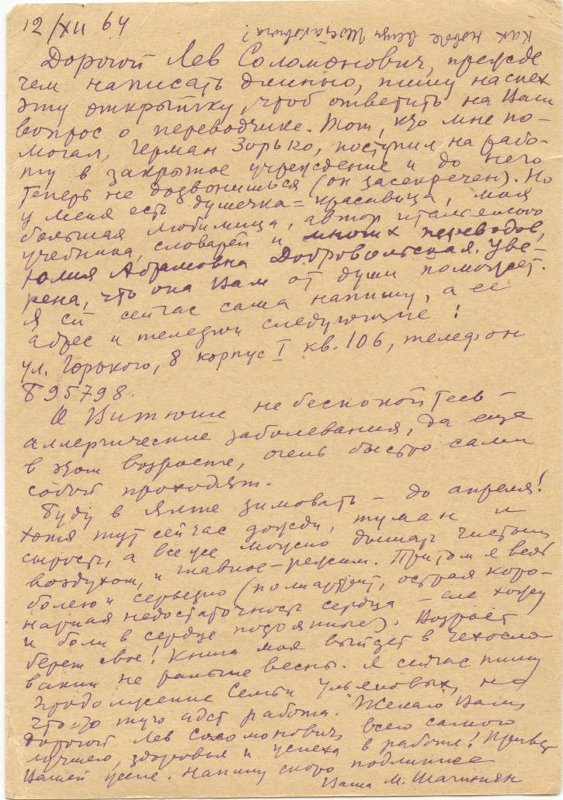 12/XII 64
Как новые вещи Шостаковича?
Дорогой Лев Соломонович, прежде
чем написать длинно, пишу наспех
эту открытку, чтоб ответить на Ваш
вопрос о переводчике. Тот, кто мне по-
могал, Герман Зорько, поступил на рабо-
ту в закрытое учреждение и до него
теперь не дозвонишься (он засекречен). Но
у меня есть душечка-красавица, моя
большая любимица, автор итальянского
учебника, словарей и многих переводов,
Юлия Абрамовна Добровольская. Уве-
рена, что она Вам от души поможет.
Я ей сейчас сама напишу, а её
адрес и телефон следующие:
ул. Горького, 8 корпус I кв. 106, телефон
Б95798.
О Витюше не беспокойтесь –
аллергические заболевания, да ещё
в этом возрасте, очень быстро сами
собой проходят.
Буду в Ялте зимовать – до апреля!
Хотя тут сейчас дожди, туман и
сырость, а всё же можно дышать чистым
воздухом, и главное – режим. Притом я всё
болею и серьезно (полиартрит, острая коро-
нарная недостаточность сердца – еле хожу
и боли в сердце постоянные). Возраст
берет свое! Книга моя выйдет в Чехосло-
вакии не раньше весны. Я сейчас пишу
продолжение Семьи Ульяновых, но
что-то туго идет работа. Желаю Вам,
дорогой Лев Соломонович всего самого
лучшего, здоровья и успеха в работе! Привет
Вашей жене. Напишу скоро подлиннее
Ваша М. Шагинян